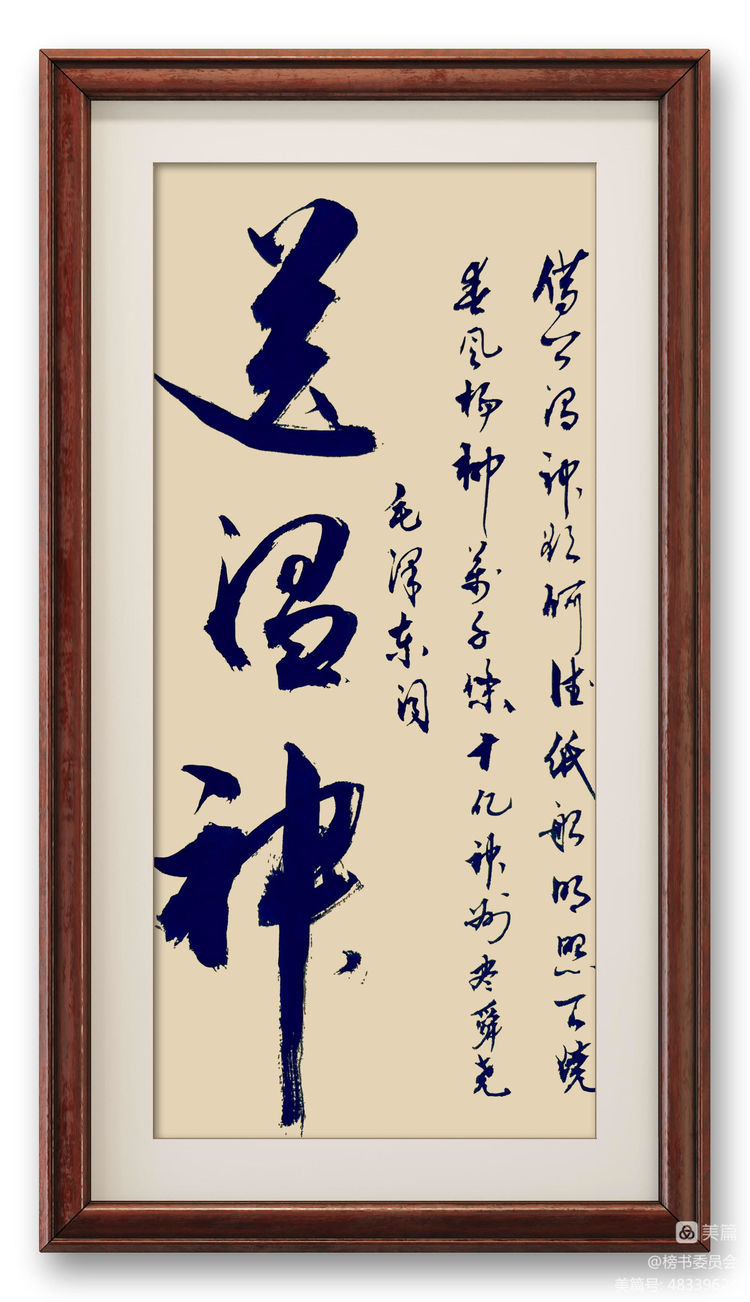 借问温神欲何往纸船明照天烧
春风杨柳萬千條十亿神州尽舜尧
毛泽东词
送温神
美篇
@榜书委员会
美篇号: